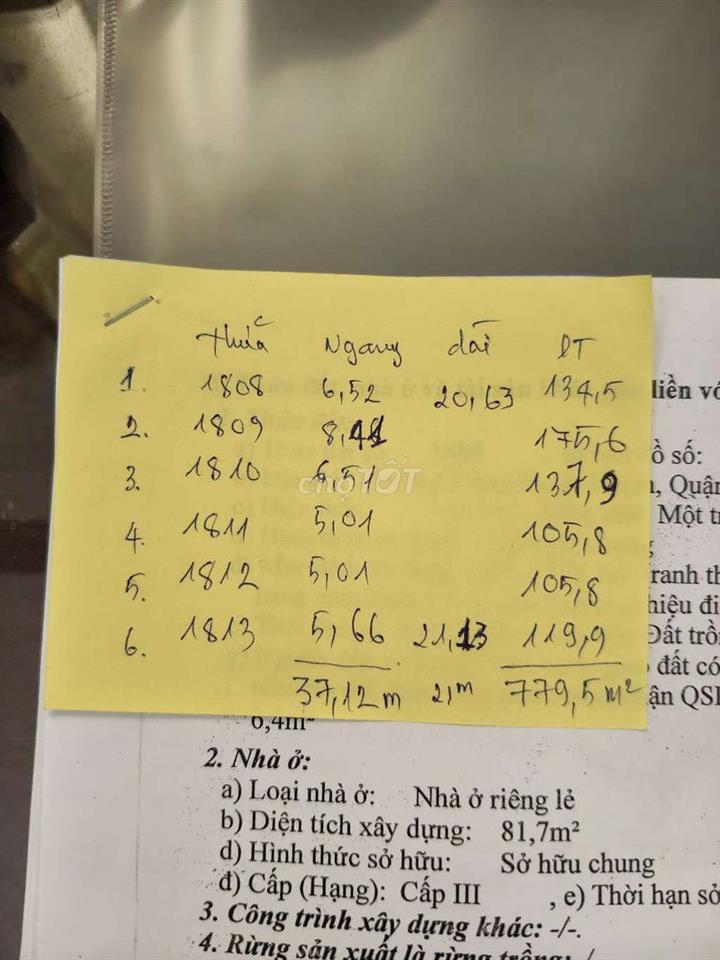 thửa Ngang dài DT
1. 1808 6,52 20,63 134,5
2. 1809 8,41 175,6
3. 1810 6,51 137,9
4. 1811 5,01 105,8
5. 1812 5,01 105,8
6. 1813 5,66 21,13 119,9
37,12m 21m 779,5m²
chợTỐT
liền vớ
ồ số:
, Quận
Một tr
ranh th
hiệu đi
Đất trồ
đất có
ận QSI
6,4m²
2. Nhà ở:
a) Loại nhà ở: Nhà ở riêng lẻ
b) Diện tích xây dựng: 81,7m²
d) Hình thức sở hữu: Sở hữu chung
đ) Cấp (Hạng): Cấp III , e) Thời hạn sở
3. Công trình xây dựng khác: -/-.
4. Rừng sản xuất là rừng trồng: -/